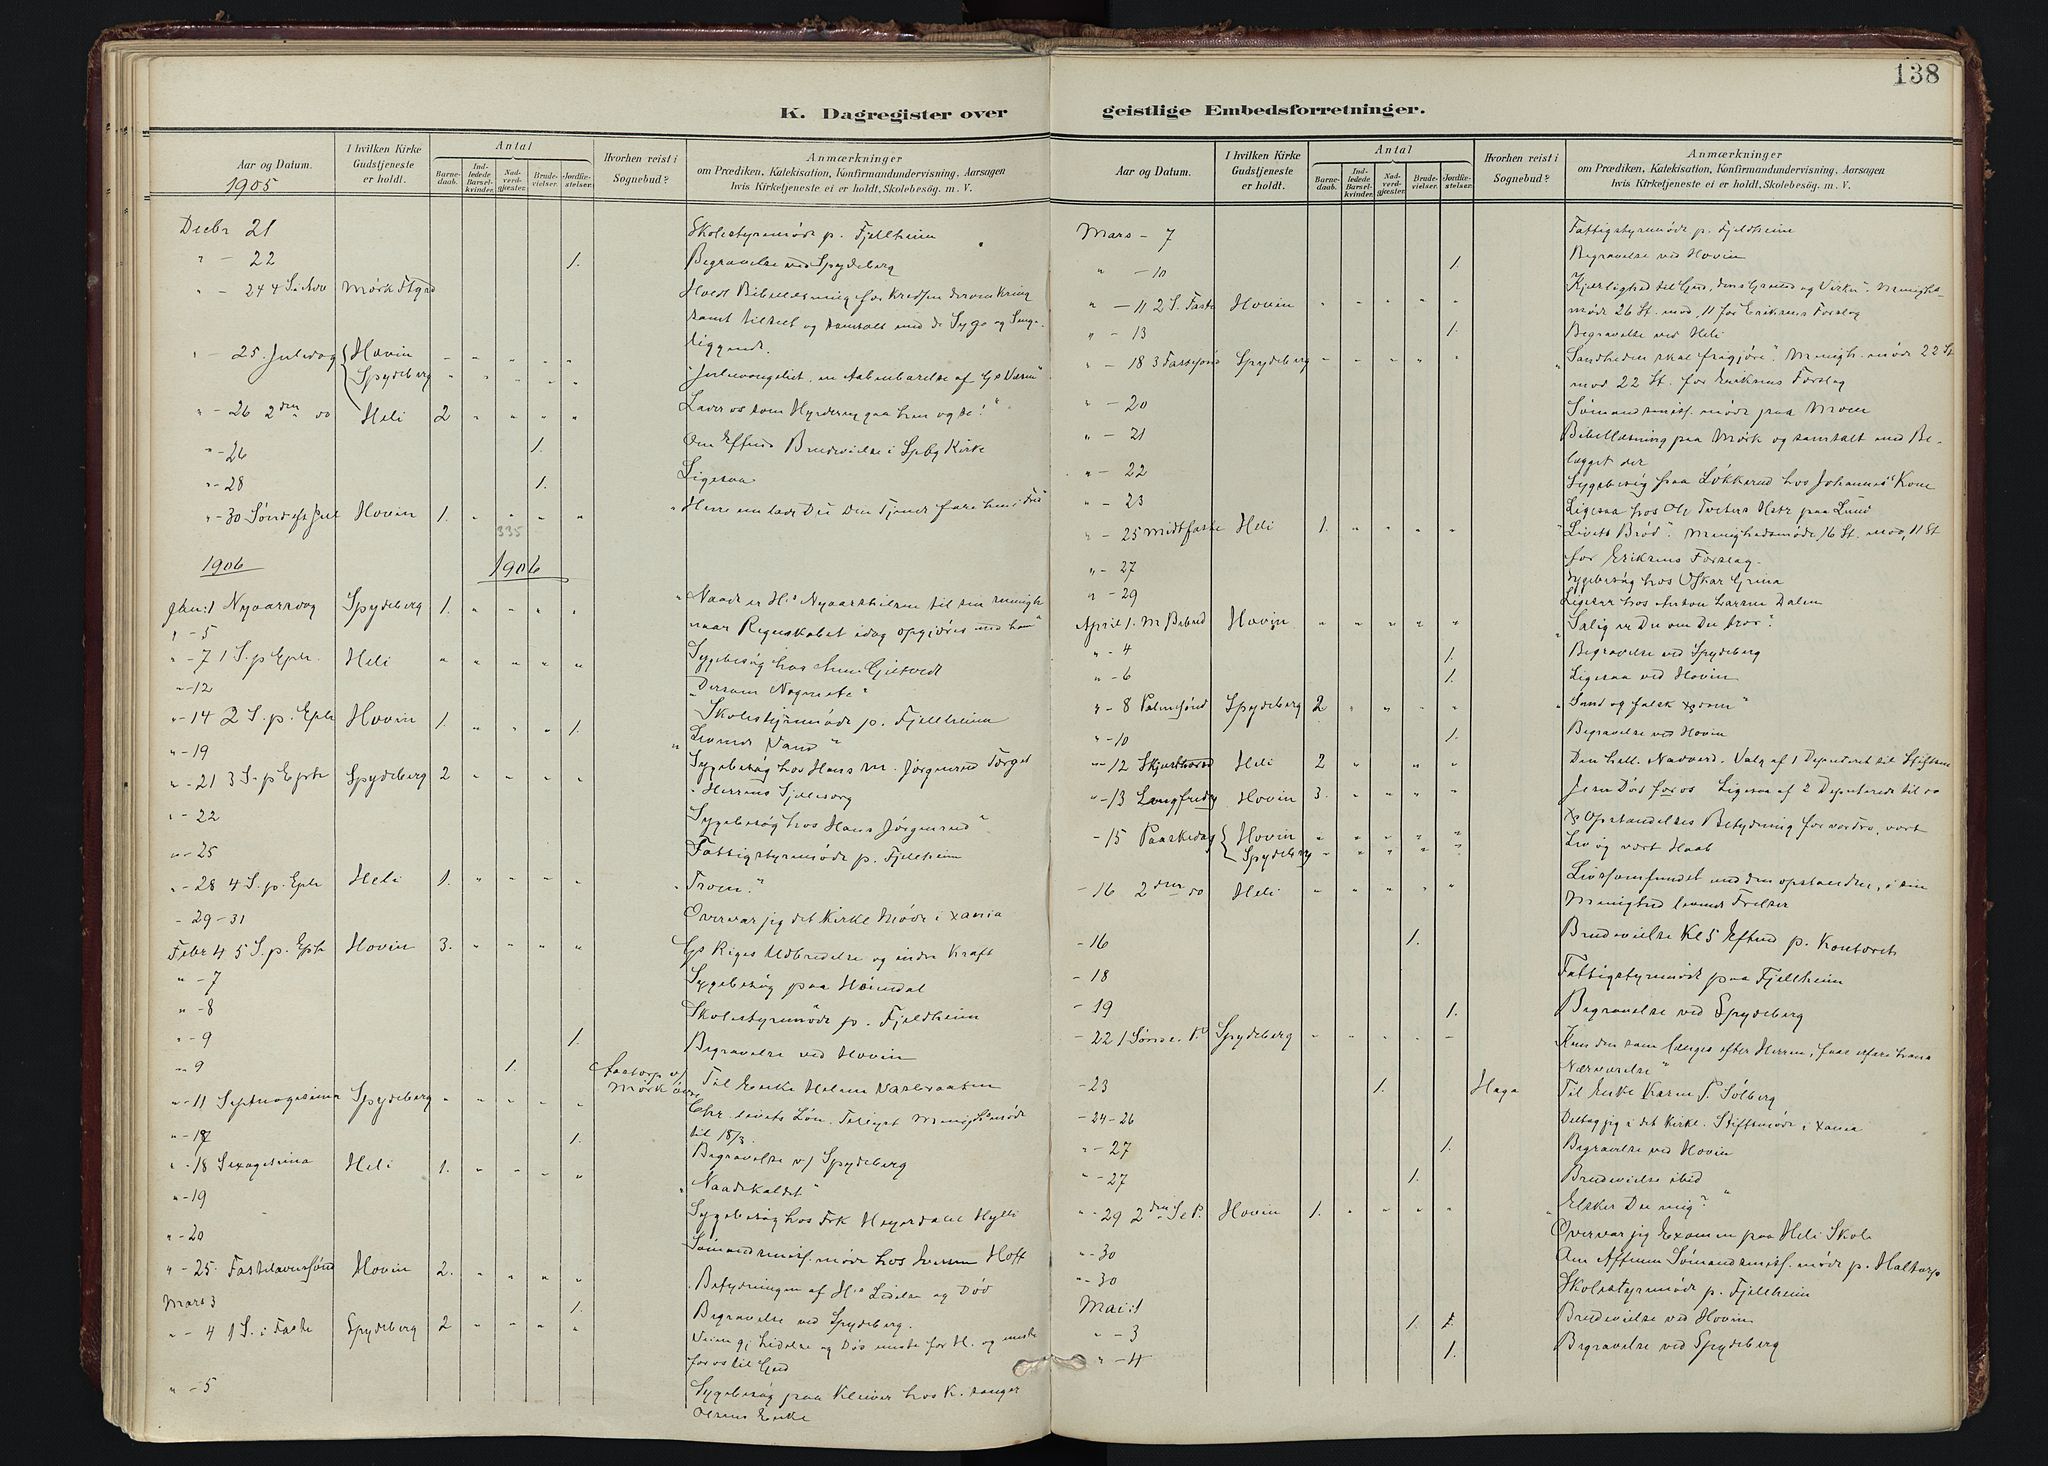 138
K. Dagregister over
geistlige Embedsforretninger.
Aar og Datum.
I hvilken Kirke Gudstjeneste er holdt.
Antal
Barnedaab.
Indledede Barselkvinder.
Nadverdgjæster.
Brudevielser.
Jordfæstelser.
Hvorhen reist i Sognebud?
Anmærkninger
om Prædiken, Katekisation, Konfirmandundervisning, Aarsagen
hvis Kirketjeneste ei er holdt, Skolebesög. m. V.
1905
Decbr 21 Skolestyremöde p. Fjellheim
" - 22 1. Begravelse ved Spydeberg
" - 24 4 S. i Adv Mørk Holdt Bibellæsning for Kredsen deromkring
samt tilset og samtalt med de Syge og Senge-
liggende.
" - 25. Juledag Hovin " " " " "
Spydeberg " " " " " "Juleevangeliet, en Aabenbarelse af Gs Væsen"
" - 26 2den do Heli 2 " " " " Lader os som Hyrderne gaa hen og se!"
" - 26 1. Om Efterm Brudevielse i Spbg Kirke
" - 28 1. Ligesaa
" - 30 Sönd eft Jul Hovin 1. " " " " "Herre nu lader Du Din Tjener fare hen i Fred"
335
1906 1906
Jan: 1 Nyaarsdag Spydeberg 1. " " " " "Naade er Hs Nyaarshilsen til sin Menigh
" - 5 naar Regnskabet idag opgjöres med ham"
" - 7 1 S. p Eph. Heli " " " " " Sygebesög hos Anne Gjeltvedt
" - 12 "Dersom Nogen
" - 14 2 S. p. Eph Hovin 1. " " " 1. Skolestyremöde p. Fjellheim
" - 19 "Levende Vand"
" - 21 3 S. p Eph Spydeberg 2 " " " " Sygebesög hos Hans M. Jörgensrud Torget
" Herrens Sjælesorg
" - 22 Sygebesög hos Hans Jörgensrud"
" - 25 Fattigstyremöde p. Fjellheim
" - 28 4 S. p. Eph Heli 1. " " " " "Troen."
- 29 - 31 Overvar jeg det Kirkl Möde i Xania
Febr 4 5 S. p. Eph Hovin 3. " " " " Gs Riges Udbredelse og indre Kraft
" - 7 Sygebesög paa
" - 8 Skolestyremöde p. Fjeldheim
" - 9 1. Begravelse ved Hovin
" - 9 1. Mörk Til Enke Helene
" - 11 Septuagesima Spydeberg " " " " " Chr. livets Lön. Tillyst Menighedsmöde
" - 17 1. til 18/3.
" - 18 Sexagesima Heli 1. " " " " Begravelse v/ Spydeberg
" - 19 "Naadekaldet"
" - 20 Sygebesög hos Frk Heyerdahl Hylli
Sömandsmisf. möde hos Hoff
" - 25. Fastelavnsönd Hovin 2. " " " " Betydningen af Hs Lidelse og Död
Mars 3 1. Begravelse ved Spydeberg.
" - 4 1 S. i Faste Spydeberg 2 " " " " Veien gj Lidelse og Död eneste for H. og eneste
for os til Gud
" - 5 Sygebesög paa Kliver hos K. sanger
Olsens Enke
Aar og Datum.
I hvilken Kirke Gudstjeneste er holdt.
Antal
Barnedaab.
Indledede Barselkvinder.
Nadverdgjæster.
Brudevielser.
Jordfæstelser.
Hvorhen reist i Sognebud?
Anmærkninger
om Prædiken, Katekisation, Konfirmandundervisning, Aarsagen
hvis Kirketjeneste ei er holdt, Skolebesög. m. V.
Mars - 7 Fattigstyremöde p. Fjeldheim
" - 10 1. Begravelse ved Hovin
" - 11 2 S. Faste Hovin " " " " " Kjærlighed til Gud, dens Grund og Virkn". Menigheds-
möde 26 St. mod, 11 for Eriksens Forslag
" - 13 1. Begravelse ved Heli
" - 18 3 Fastesönd Spydeberg " " " " " "Sandheden skal frigjöre". Menigh. möde 22 St
mod 22 St. for Eriksens Forslag
" - 20 Sömandsmisf. möde paa Moen
" - 21 Bibellæsning paa Mörk og samtalt med Be-
lægget der
" - 22 Sygebesög paa Lökkerud hos Johannes' Kone
" - 23 Ligesaa hos Ole Tveters Datr paa Lund
" - 25 Midtfaste Heli 1. " " " " "Livets Bröd". Menighedsmöde, 16 St. mod, 11 St
for Eriksens Forslag.
" - 27 Sygebesög hos Oskar Grina
" - 29 Ligesaa hos Anton Larsen Dalen
April 1. M Bebud Hovin " " " " " "Salig er Du om Du tror".
" - 4 1. Begravelse ved Spydeberg
" - 6 1. Ligesaa ved Hovin
" - 8 Palmesönd Spydeberg 2 " " " " "Sand og falsk Xsdom"
" - 10 1. Begravelse ved Hovin
" - 12 Skjærthorsd Heli 2 " " " Den hell. Nadverd. Valg af 1 Deputeret til Stiftsm
" - 13 Langfredag Hovin 3. " " " " Jesu Död for os. Ligesaa af 2 Deputerede til do
- 15 Paaskedag Hovin " " " " " Xs Opstandelses Betydning for vor Tro, vort
Spydeberg " " " " " Liv og vort Haab
- 16 2den do Heli " " " " " Livssamfundet med den opstandne, i sin
Menighed levende Frelser
- 16 1. Brudevielse Kl 5 Efterm p. Kontoret
- 18 Fattigstyremöde paa Fjellheim
- 19 1. Begravelse ved Spydeberg
- 22 1 Sönd e. P. Spydeberg " " " " " Kun den som længes efter Herren, faar erfare hans
Nærværelse"
- 23 1. Haga Til Enke Karen P. Solberg
- 24 - 26 Deltog jeg i det Kirkl. Stiftsmöde i Xania
" - 27 1. Begravelse ved Hovin
" - 27 1. Brudevielse ibid
" - 29 2den S e P. Hovin 1. " " " " "Elsker Du mig?"
" - 30 Overvar jeg Examen paa Heli Skole
" - 30 Om Aftenen Sömandsmisf. möde p. Haltorp
Mai: 1 Skolestyremöde p. Fjellheim
" - 3 1. Brudevielse ved Hovin
" - 4 1. Begravelse ved Spydeberg